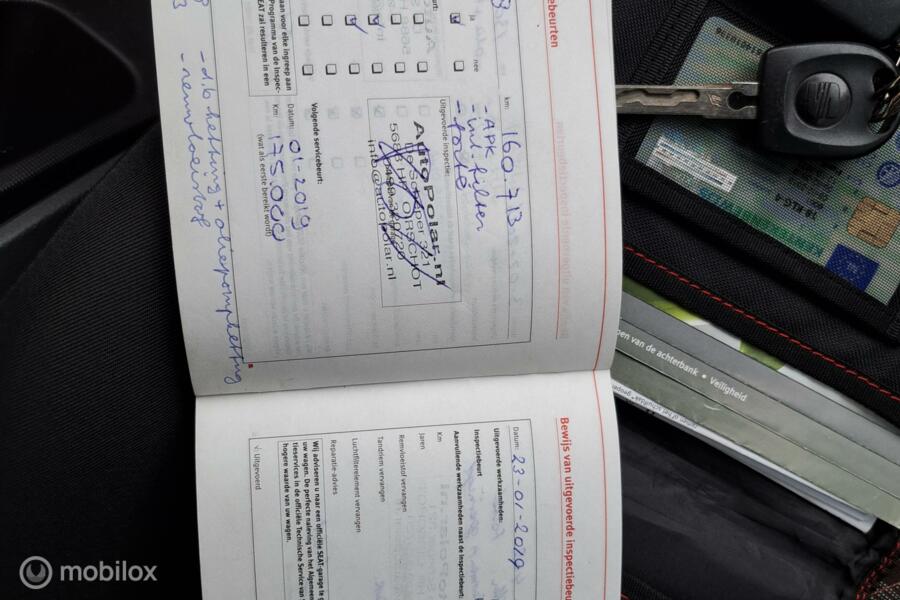 ebeurten
ja
nee
km:
160.713
Uitgevoerde inspectie:
- APK
- int. filter
- foto
Autopolar.nl
De Schaper 321
5688 HP OIRSCHOT
info@autopolar.nl
Volgende servicebeurt:
Datum: 01-2019
Km: 175.000
(wat als eerste bereikt wordt)
aan voor elke ingreep aan
Programma van de Inspec-
SEAT zal resulteren in een
- d.b ketting + oliepompketting
- remvloeistof
Bewijs van uitgevoerde inspectiebeu
Datum: 23-01-2019
Uitgevoerde werkzaamheden:
Inspectiebeurt
Aanvullende werkzaamheden naast de Inspectiebeurt:
Km
Jaren
Remvloeistof vervangen
Tandriem vervangen
Luchtfilterelement vervangen
Reparatie-advies
Wij adviseren u naar een officiële SEAT-garage te g
uw wagen. De perfecte naleving van het Algemeen
tieservices in de officiële Technische Service van
hogere waarde van uw wagen.
√: Uitgevoerd
pen van de achterbank • Veiligheid
NL
mobilox